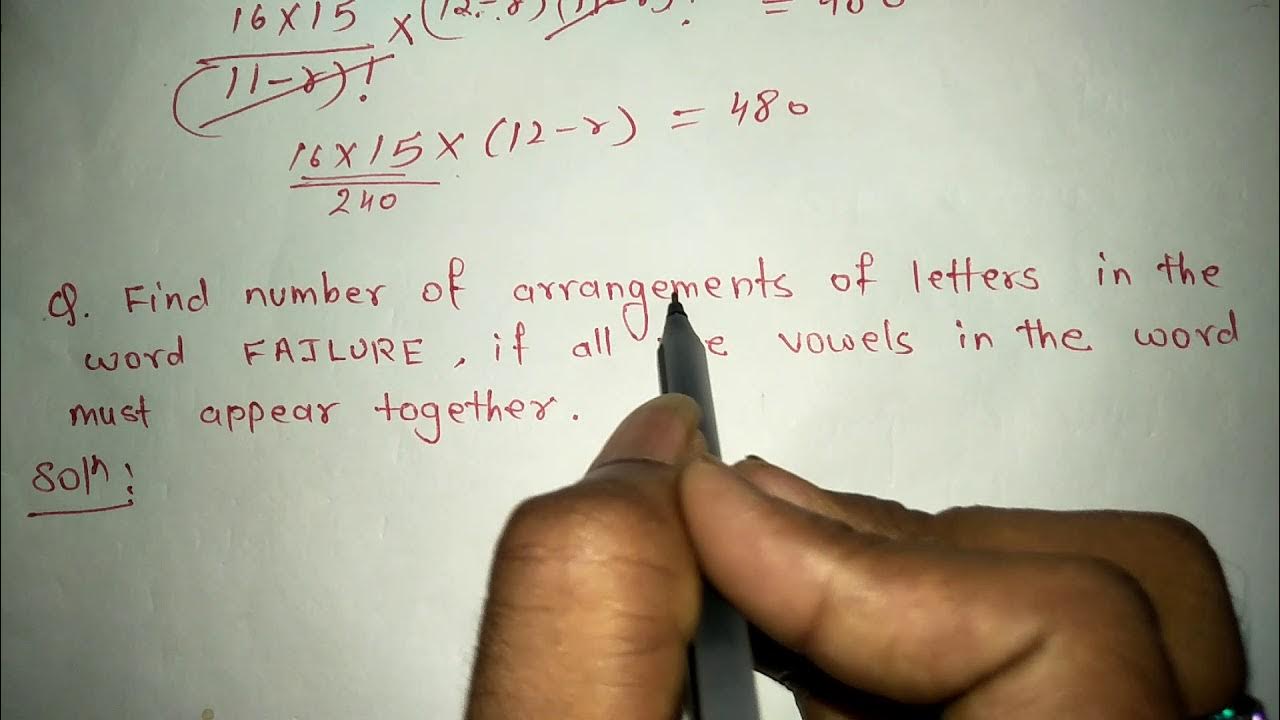 16 × 15 × (12-r)
= 480
(11-r)!
16 × 15 × (12-r) = 480
240
Q. Find number of arrangements of letters in the
word FAILURE, if all vowels in the word
must appear together.
Solⁿ: